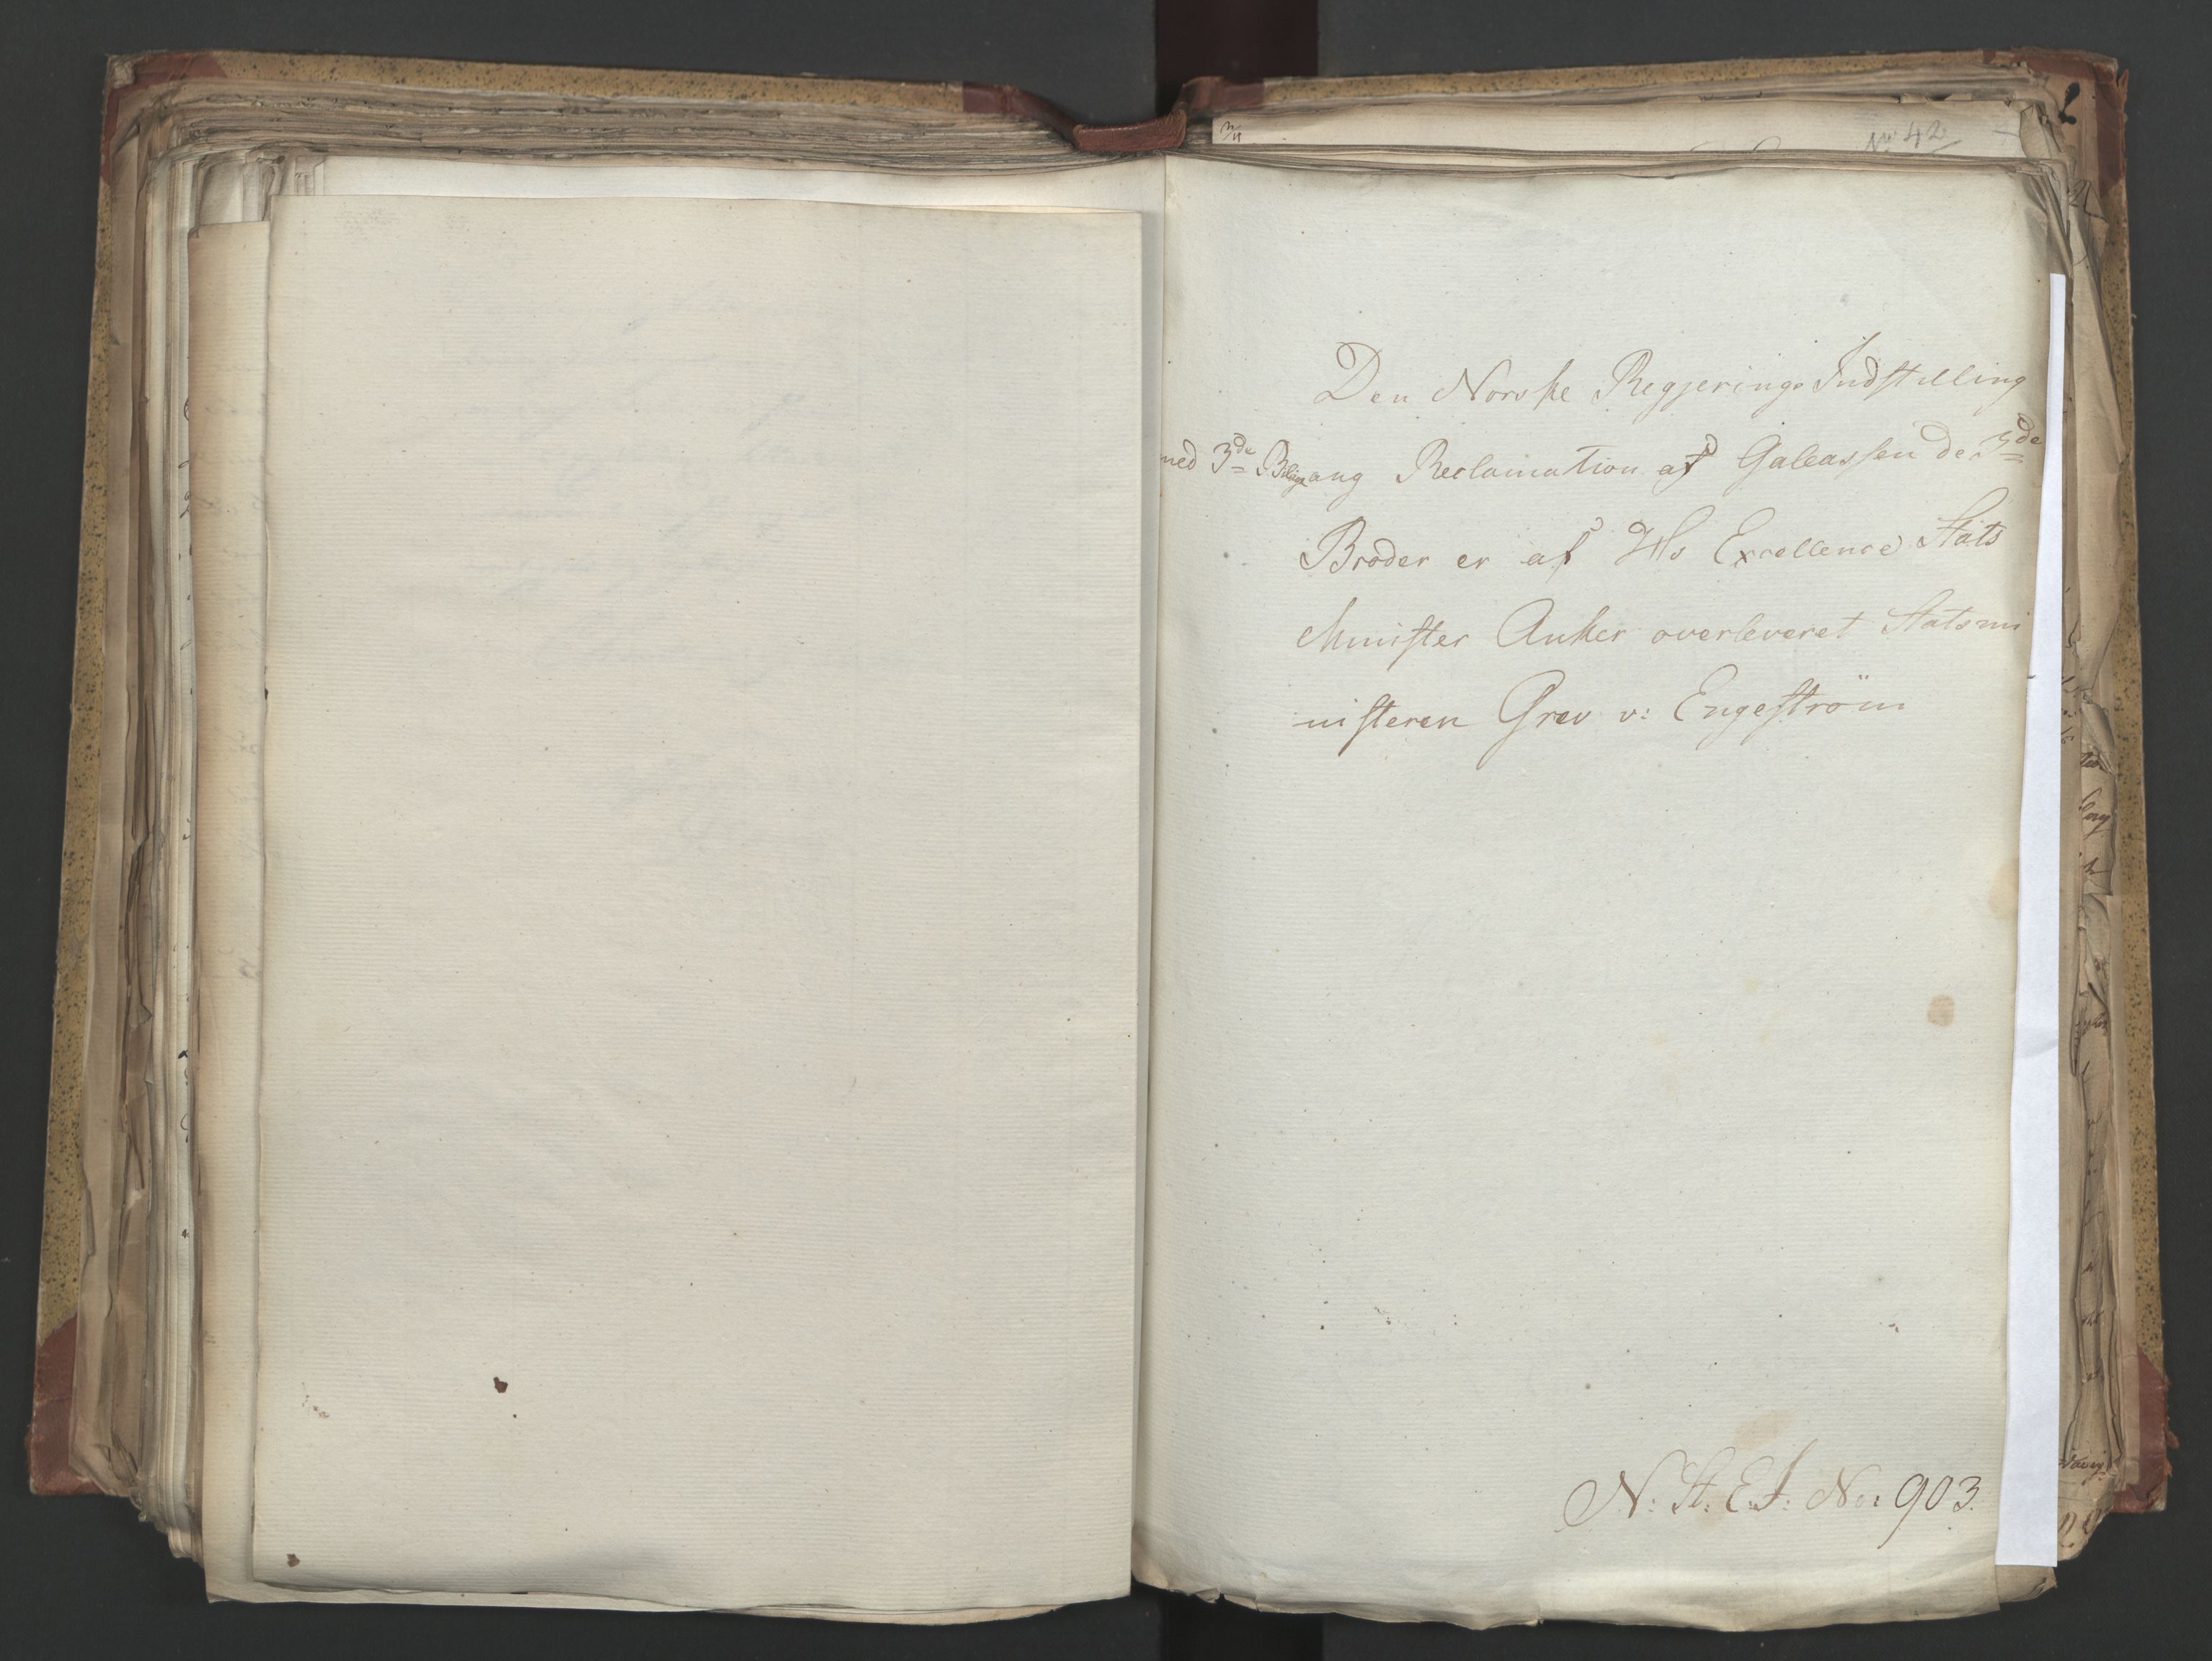 No 42
Den Norske Regjerings Indstilling
med 3de Bilage ang Reclamation af Galeassen de 3de
Brøder er af Hs Excellence Stats
Minister Anker overleveret Statsmi
nisteren Grev v: Engeström
N: St: E: J: No: 903.